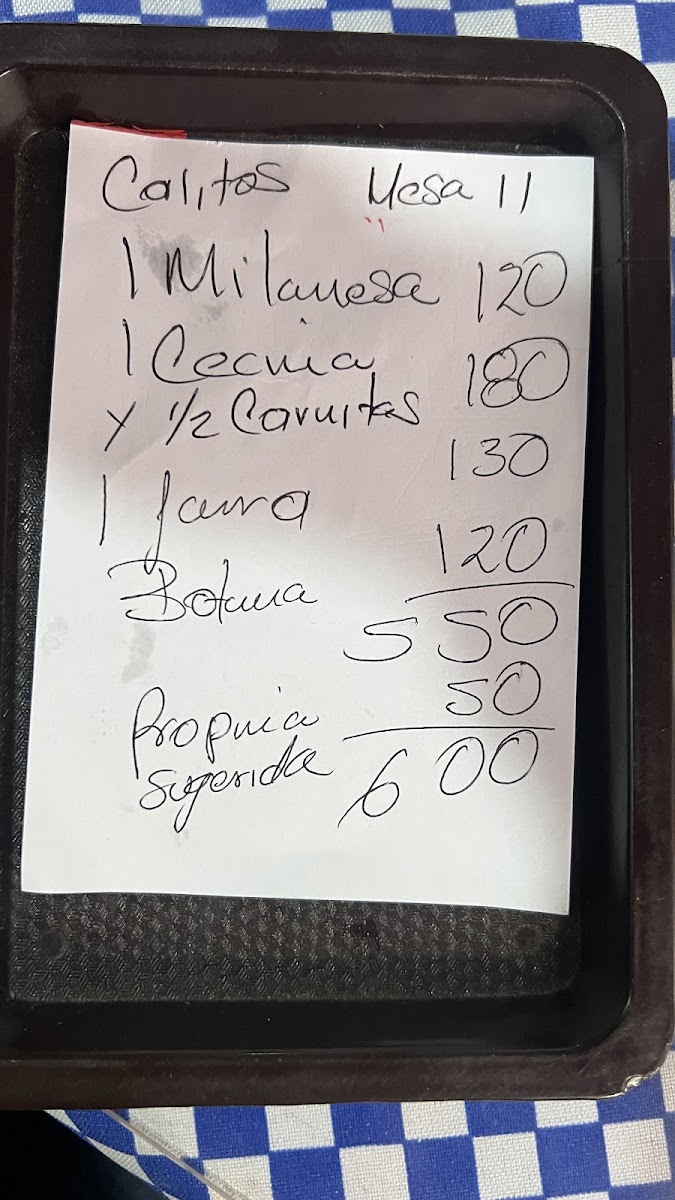 Calitos Mesa 11
"
1 Milanesa 120
1 Cecina 180
y 1/2 Carnitas
130
1 Jarra
120
Botana
550
50
Propnia
sugerida 600